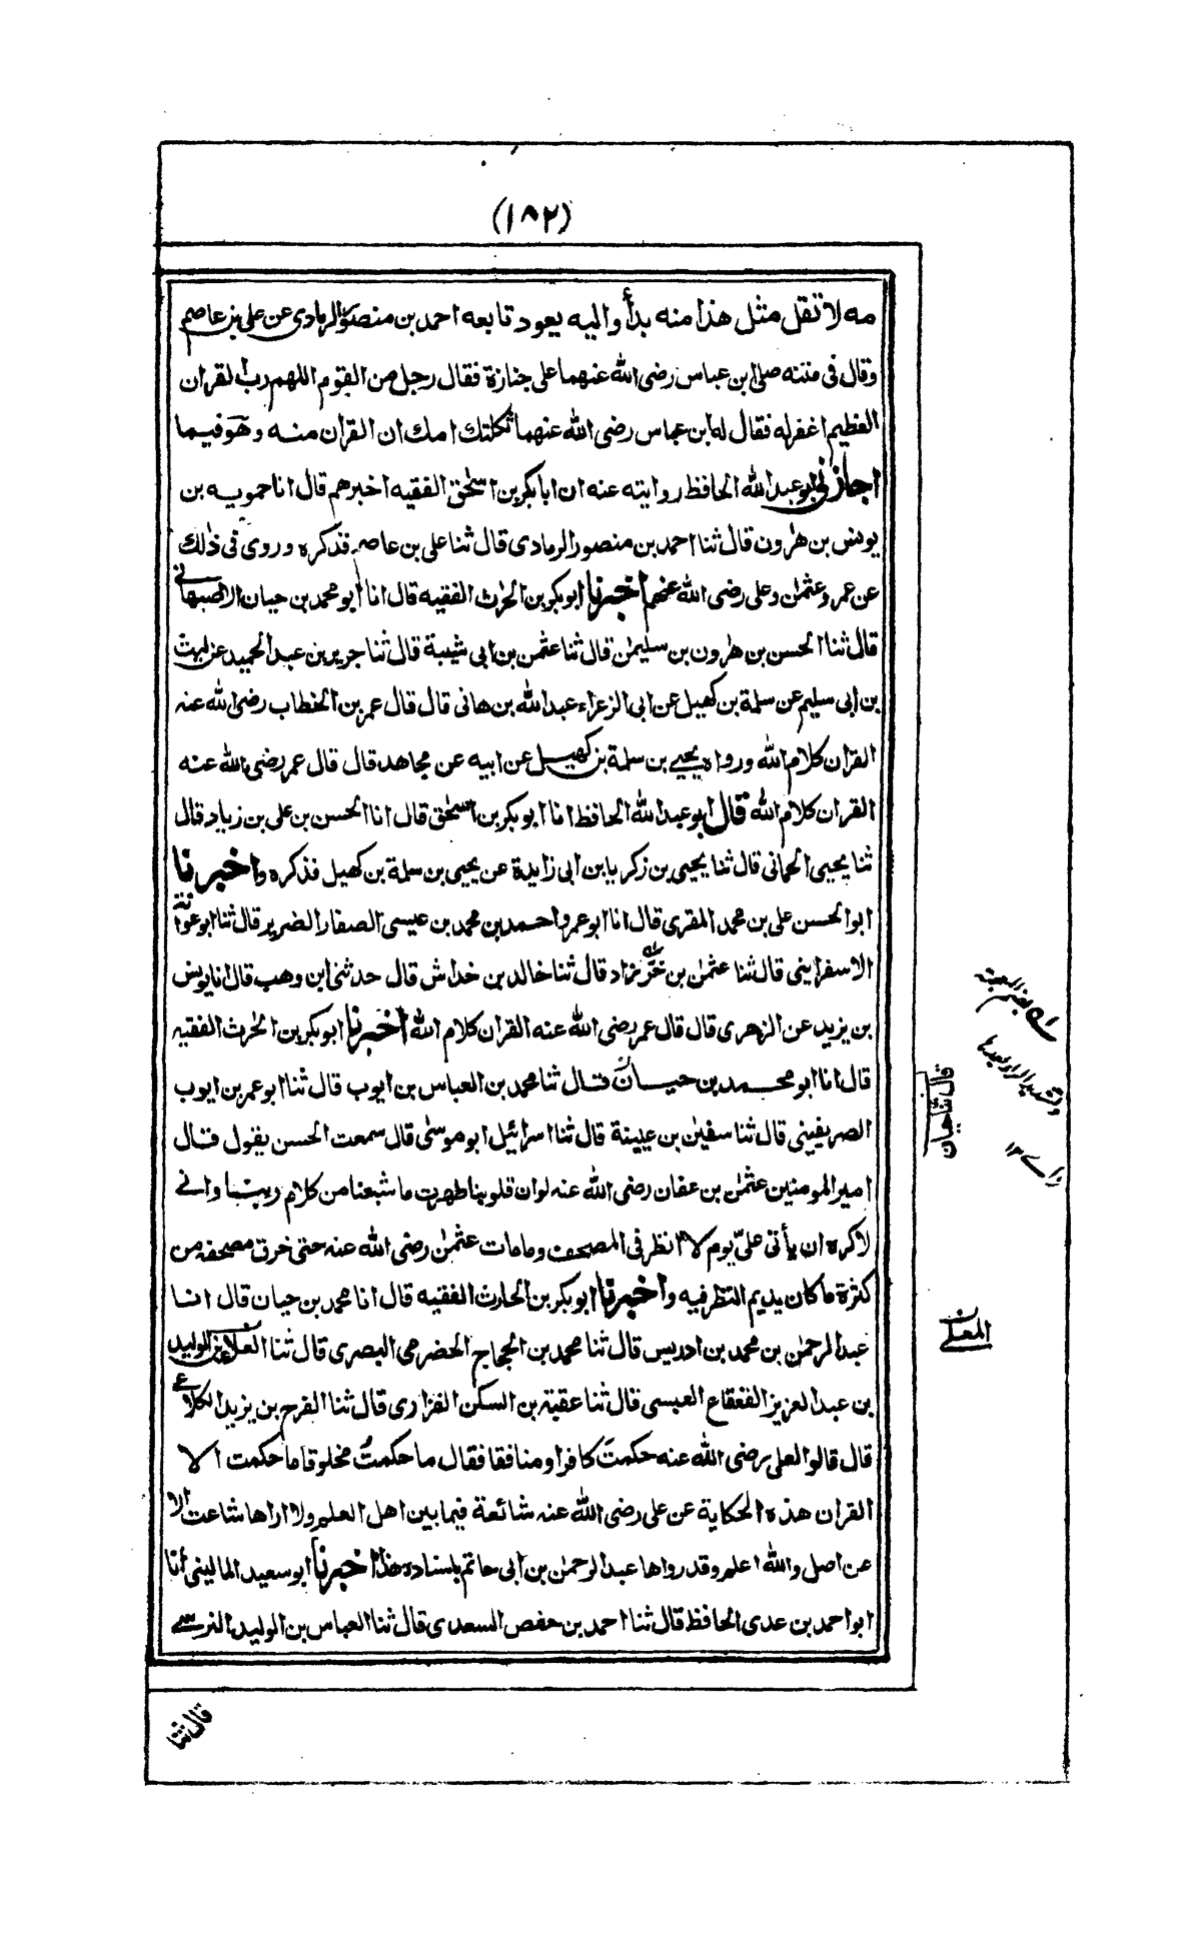 (١٨٢)
مه لا تقل مثل هذا منه بدأ واليه يعود تابعه احمد بن منصور الرمادى عن على بن عاصم
وقال فى متنه صلى ابن عباس رضى الله عنهما على جنازة فقال رجل من القوم اللهم رب القران
العظيم اغفر له فقال له ابن عباس رضى الله عنهما ثكلتك امك ان القران منه وهو فيما
اجازنى ابو عبد الله الحافظ روايته عنه ان ابا بكر بن اسحٰق الفقيه اخبرهم قال انا حمويه بن
يونس بن هٰرون قال ثنا احمد بن منصور الرمادى قال ثنا على بن عاصم فذكره وروى فى ذٰلك
عن عمر وعثمٰن وعلى رضى الله عنهم اخبرنا ابو بكر بن الحٰرث الفقيه قال انا ابو محمد بن حيان الاصبهانى
قال ثنا الحسن بن هٰرون بن سليمٰن قال ثنا عثمٰن بن ابى شيبة قال ثنا جرير بن عبد الحميد عن ليث
بن ابى سليم عن سلمة بن كهيل عن ابى الزعراء عبد الله بن هانى قال قال عمر بن الخطاب رضى الله عنه
القران كلام الله ورواه يحيى بن سلمة بن كهيل عن ابيه عن مجاهد قال قال عمر رضى الله عنه
القران كلام الله قال ابو عبد الله الحافظ انا ابو بكر بن اسحٰق قال انا الحسن بن على بن زياد قال
ثنا يحيى الحمانى قال ثنا يحيى بن زكريا بن ابى زايدة عن يحيى بن سلمة بن كهيل فذكره واخبرنا
ابو الحسن على بن محمد المقرى قال انا ابو عمرو احمد بن محمد بن عيسى الصفار الضرير قال ثنا ابو عوانة
الاسفراينى قال ثنا عثمٰن بن خرزاد قال ثنا خالد بن خداش قال حدثنى ابن وهب قال انا يونس
بن يزيد عن الزهرى قال قال عمر رضى الله عنه القران كلام الله اخبرنا ابو بكر بن الحٰرث الفقيه
قال انا ابو محمد بن حيان قال ثنا محمد بن العباس بن ايوب قال ثنا ابو عمر بن ايوب
الصريفينى قال ثنا سفيٰن بن عيينة قال ثنا اسرائيل ابو موسٰى قال سمعت الحسن يقول قال
امير المومنين عثمٰن بن عفان رضى الله عنه لو ان قلوبنا طهرت ما شبعنا من كلام ربنا وانى
لاكره ان يأتى علىّ يوم لا انظر فى المصحف وما مات عثمٰن رضى الله عنه حتى خرق مصحفه من
كثرة ما كان يديم النظر فيه واخبرنا ابو بكر بن الحارث الفقيه قال انا محمد بن حيان قال انا
عبد الرحمٰن بن محمد بن ادريس قال ثنا محمد بن الحجاج الحضرمى البصرى قال ثنا العلا بن الوليد
بن عبد العزيز القعقاع العبسى قال ثنا عقبة بن السكن الفزارى قال ثنا الفرج بن يزيد الكلاعى
قال قالوا لعلى رضى الله عنه حكمتَ كافرا ومنافقا فقال ما حكمتُ مخلوقا ما حكمت الا
القران هذه الحكاية عن على رضى الله عنه شائعة فيما بين اهل العلم ولا اراها شاعت الا
عن اصل والله اعلم وقد رواها عبد الرحمٰن بن ابى حاتم باسناده هذا اخبرنا ابو سعيد المالينى انا
ابو احمد بن عدى الحافظ قال ثنا احمد بن حفص السعدى قال ثنا العباس بن الوليد النرسى
قال ثنا
قال ثنا حيان
بضم المعجمة
وتشديد الراء بعدها
زاى ١٢